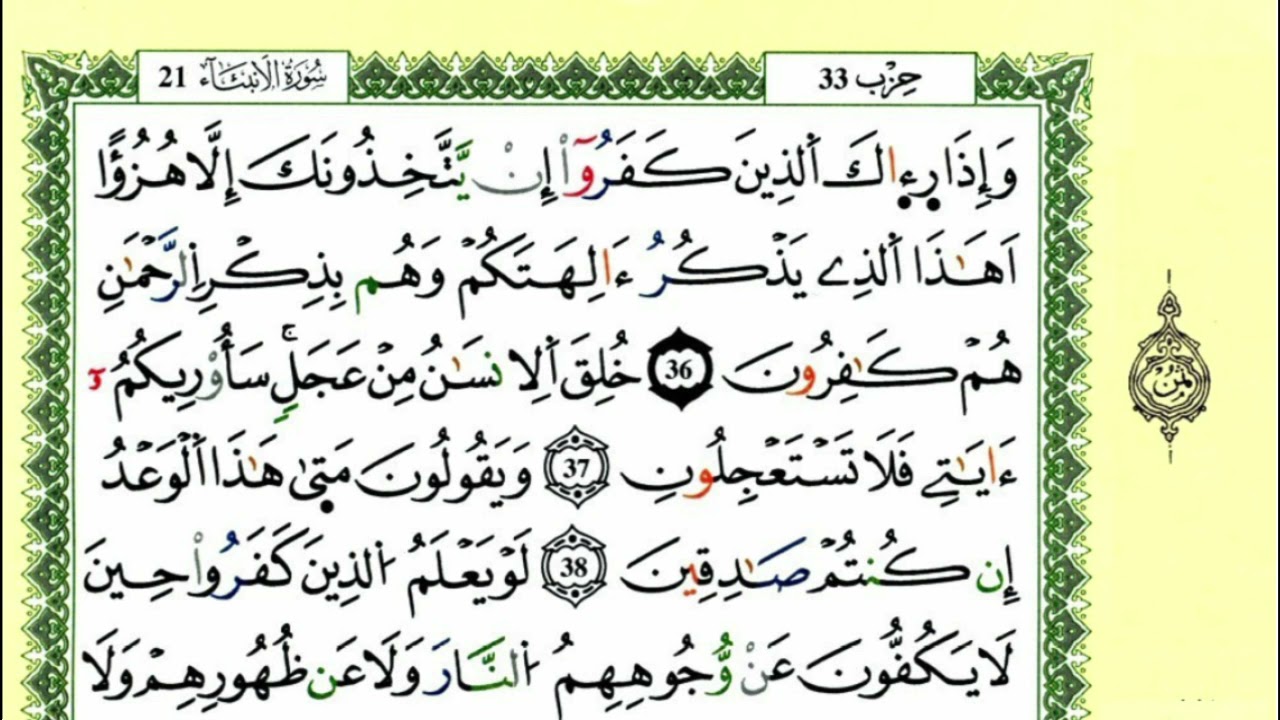 حزب 33
سُورَةُ الْأَنْبِيَاءِ 21
وَإِذَا رِء۪اكَ اَ۬لذِينَ كَفَرُوٓاْ إِنْ يَّتَّخِذُونَكَ إِلَّا هُزُؤاً
اَهَٰذَا اَ۬لذِے يَذْكُرُ ءَالِهَتَكُمْ وَهُم بِذِكْرِ اِ۬لرَّحْمَٰنِ
هُمْ كَٰفِرُونَ 36 خُلِقَ اَ۬لِانسَٰنُ مِنْ عَجَلٍۖ سَأُوْرِيكُمُۥٓ
ءَايَٰتِے فَلَا تَسْتَعْجِلُونِ 37 وَيَقُولُونَ مَت۪يٰ هَٰذَا اَ۬لْوَعْدُ
إِن كُنتُمْ صَٰدِقِينَ 38 لَوْ يَعْلَمُ اُ۬لذِينَ كَفَرُواْ حِينَ
لَا يَكُفُّونَ عَنْ وُّجُوهِهِمُ اُ۬لنَّارَ وَلَا عَن ظُهُورِهِمْ وَلَا
ثمن